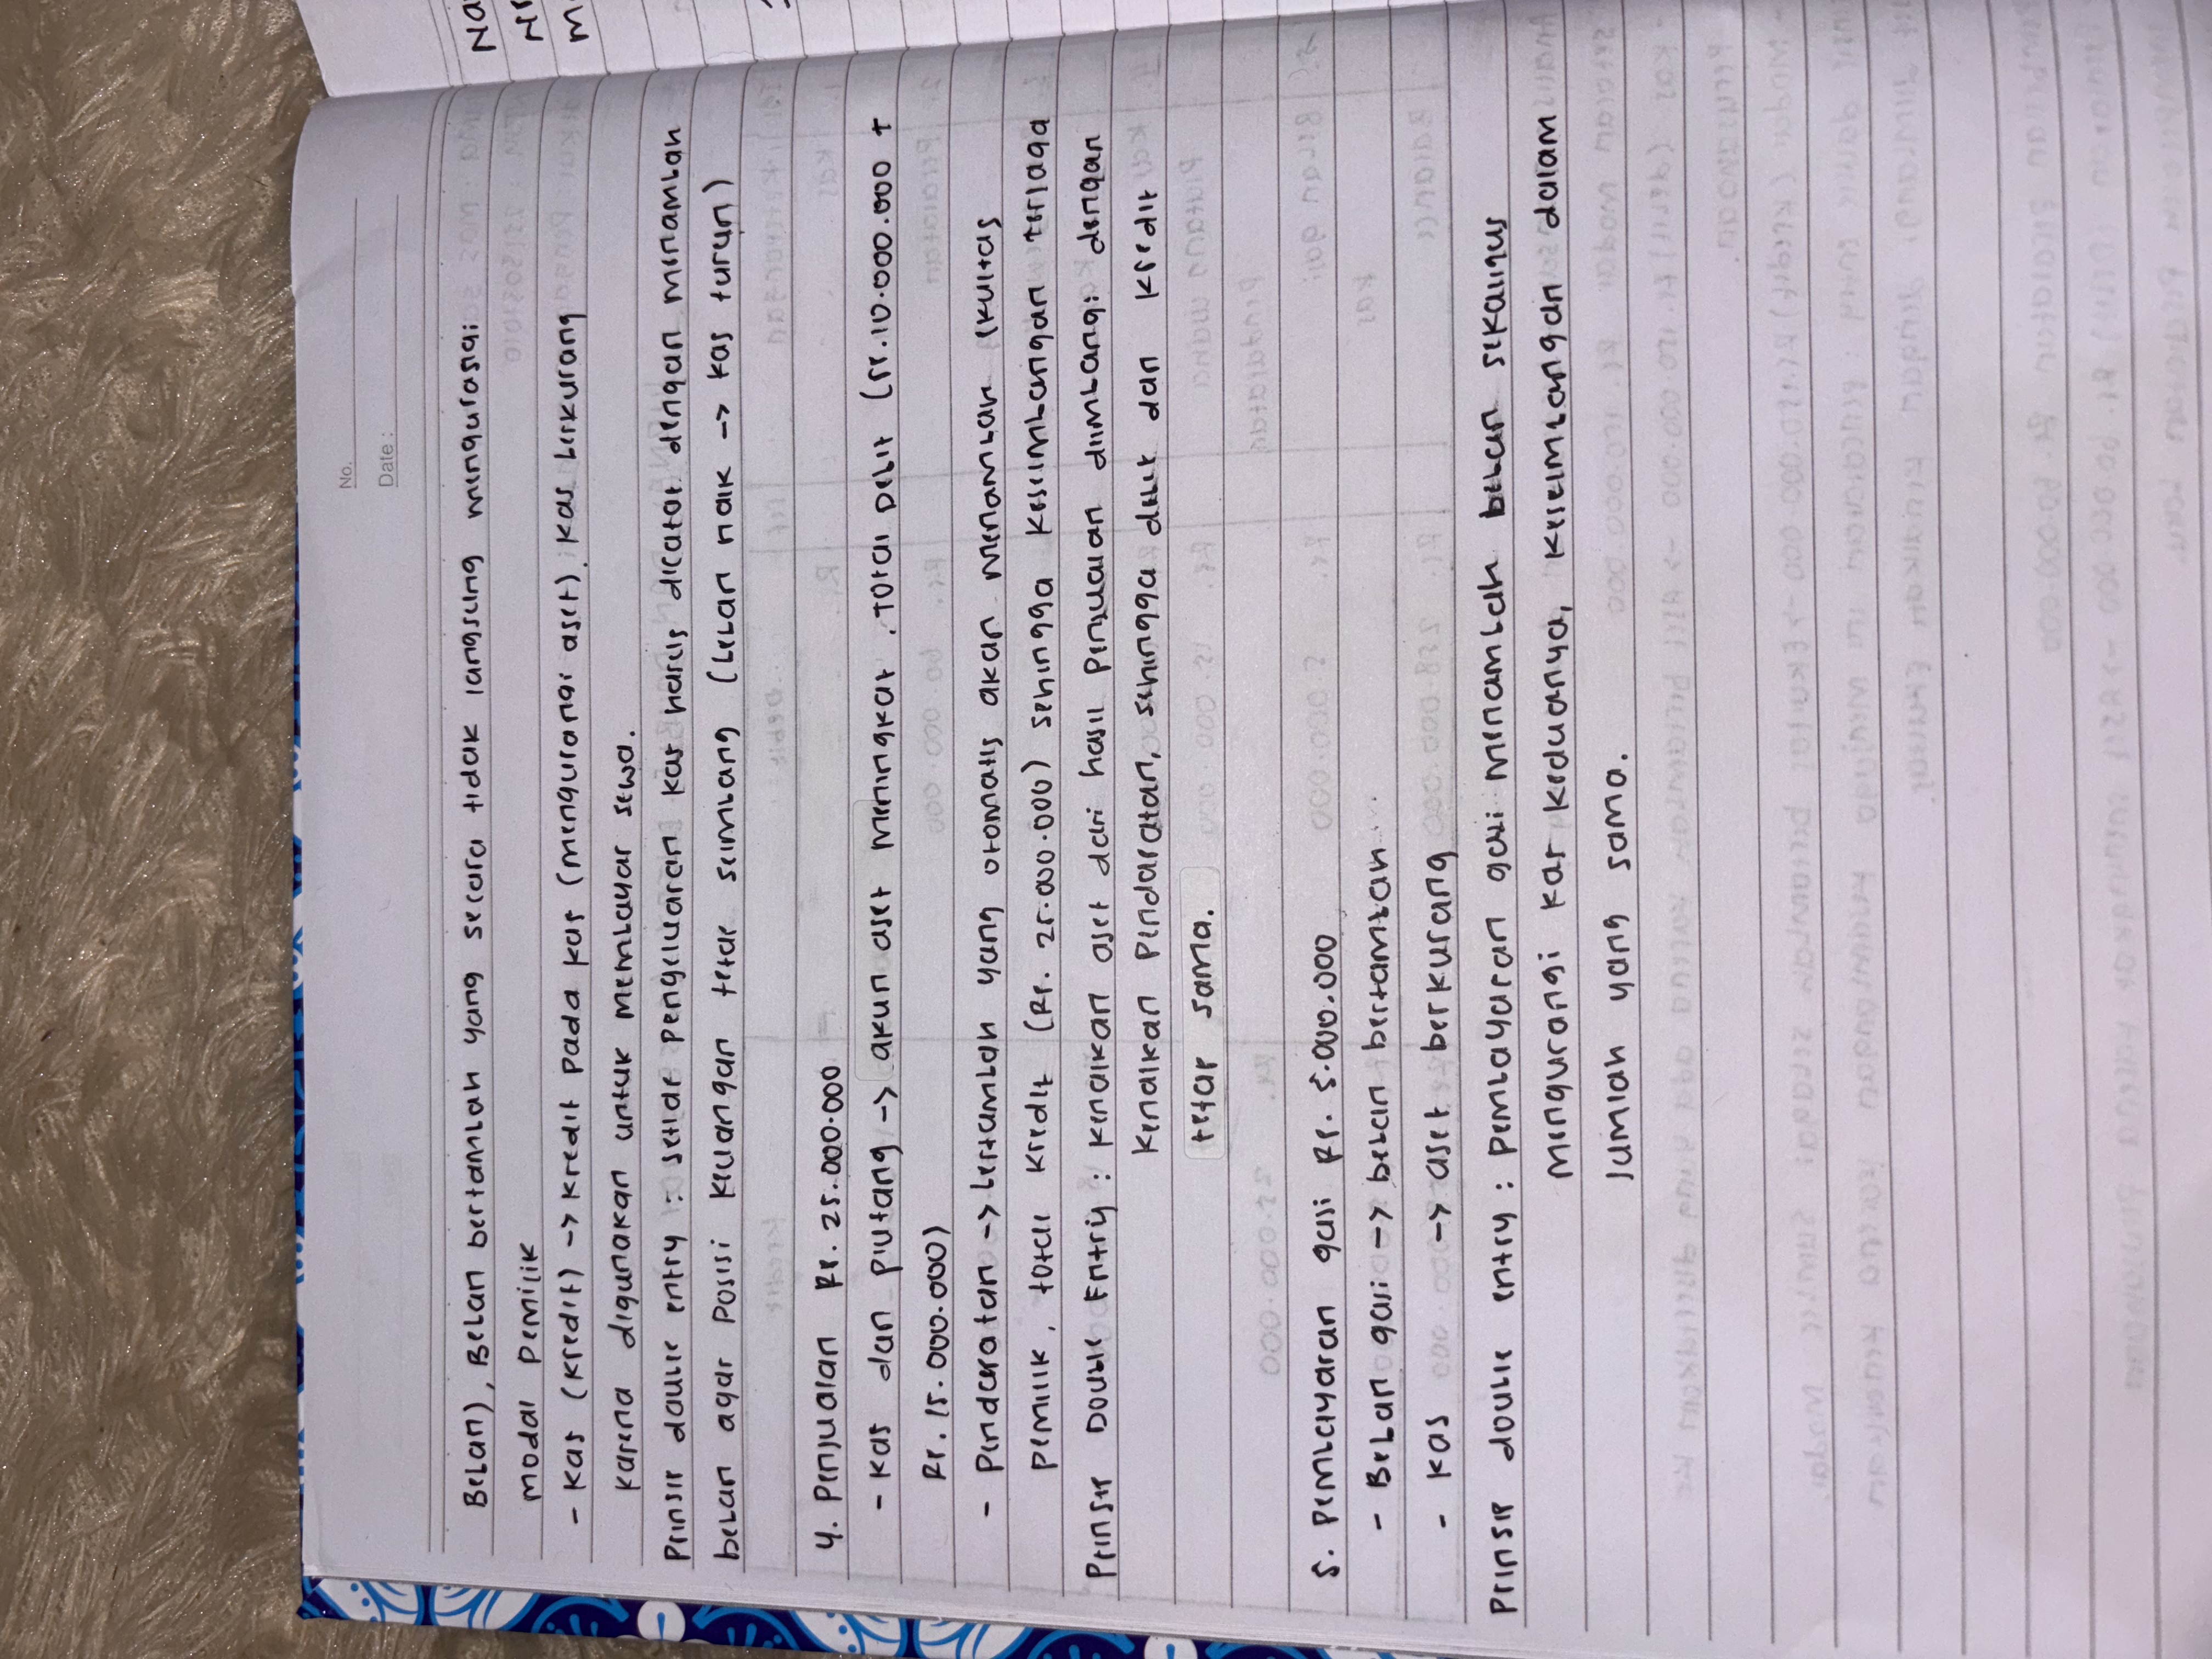 No.
Date :
Beban), Beban bertambah yang secara tidak langsung mengurangi
modal pemilik
- Kas (kredit) -> kredit pada kas (mengurangi aset), kas berkurang
karena digunakan untuk membayar sewa.
Prinsip double entry : setiap pengeluaran kas harus dicatat dengan menambah
beban agar posisi keuangan tetap seimbang (beban naik -> kas turun)
4. Penjualan Rp. 25.000.000
- kas dan piutang -> akun aset meningkat. Total Debit (Rp.10.000.000 +
Rp. 15.000.000)
- Pendapatan -> bertambah yang otomatis akan menambah ekuitas
pemilik, total kredit (Rp. 25.000.000) sehingga keseimbangan terjaga
Prinsip Double Entry : kenaikan aset dari hasil penjualan diimbangi dengan
kenaikan pendapatan, sehingga debit dan kredit
tetap sama.
5. Pembayaran gaji Rp. 5.000.000
- Beban gaji -> beban bertambah
- kas -> aset berkurang
Prinsip double entry : pembayaran gaji menambah beban sekaligus
mengurangi kas keduanya, keseimbangan dalam
jumlah yang sama.